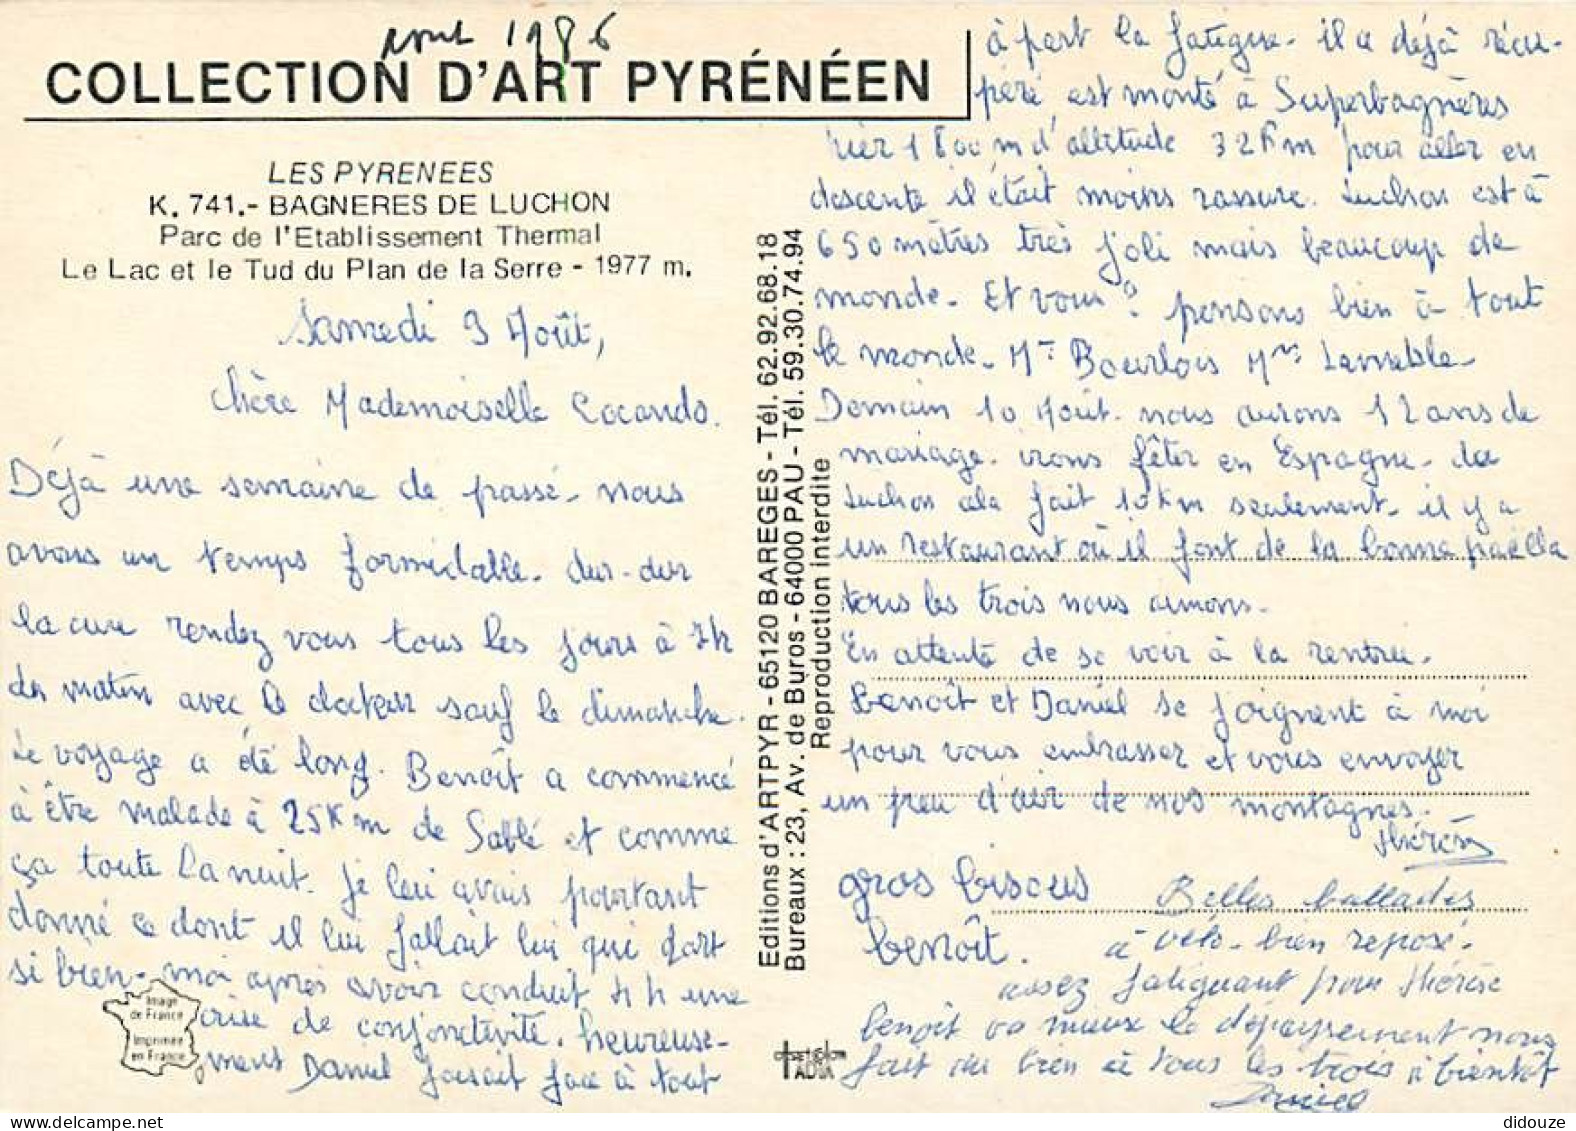 août 1986
COLLECTION D'ART PYRÉNÉEN
LES PYRENEES
K. 741.- BAGNERES DE LUCHON
Parc de l'Etablissement Thermal
Le Lac et le Tud du Plan de la Serre - 1977 m.
Samedi 9 Août,
Chère Mademoiselle Cocando.
Déjà une semaine de passé. nous
avons un temps formidable. dur-dur
la cure rendez vous tous les jours à 7h
du matin avec le docteur sauf le dimanche.
Le voyage a été long. Benoît a commencé
à être malade à 25 Km de Sablé et comme
ça toute la nuit. je lui avais pourtant
donné ce dont il lui fallait lui qui part
si bien. moi après avoir conduit 4 h une
crise de conjonctivité. heureuse-
ment Daniel faisait face à tout
Image
de France
Imprimée
en France
Editions d'ARTPYR - 65120 BAREGES - Tél. 62.92.68.18
Bureaux : 23, Av. de Buros - 64000 PAU - Tél. 59.30.74.94
Reproduction interdite
à part la fatigue. il a déjà récu-
péré, est monté à Superbagnères
hier 1800 m d'altitude 32 Km pour aller en
descente il était moins rassuré. Luchon est à
650 mètres très joli mais beaucoup de
monde. Et vous? pensons bien à tout
le monde. Mr Bourlois Mme
Demain 10 Août. nous aurons 12 ans de
mariage. irons fêter en Espagne. de
Luchon cela fait 10 Km seulement. il y a
un restaurant où il font de la bonne paëlla
tous les trois nous aimons.
En attente de se voir à la rentrée.
Benoît et Daniel se joignent à moi
pour vous embrasser et vous envoyer
un peu d'air de nos montagnes.
Thérèse
gros bisous
benoît.
Belles ballades
à vélo. bien reposé.
assez fatiguant pour Thérèse
benoît va mieux le dépaysement nous
fait du bien à tous les trois à bientôt
Daniel